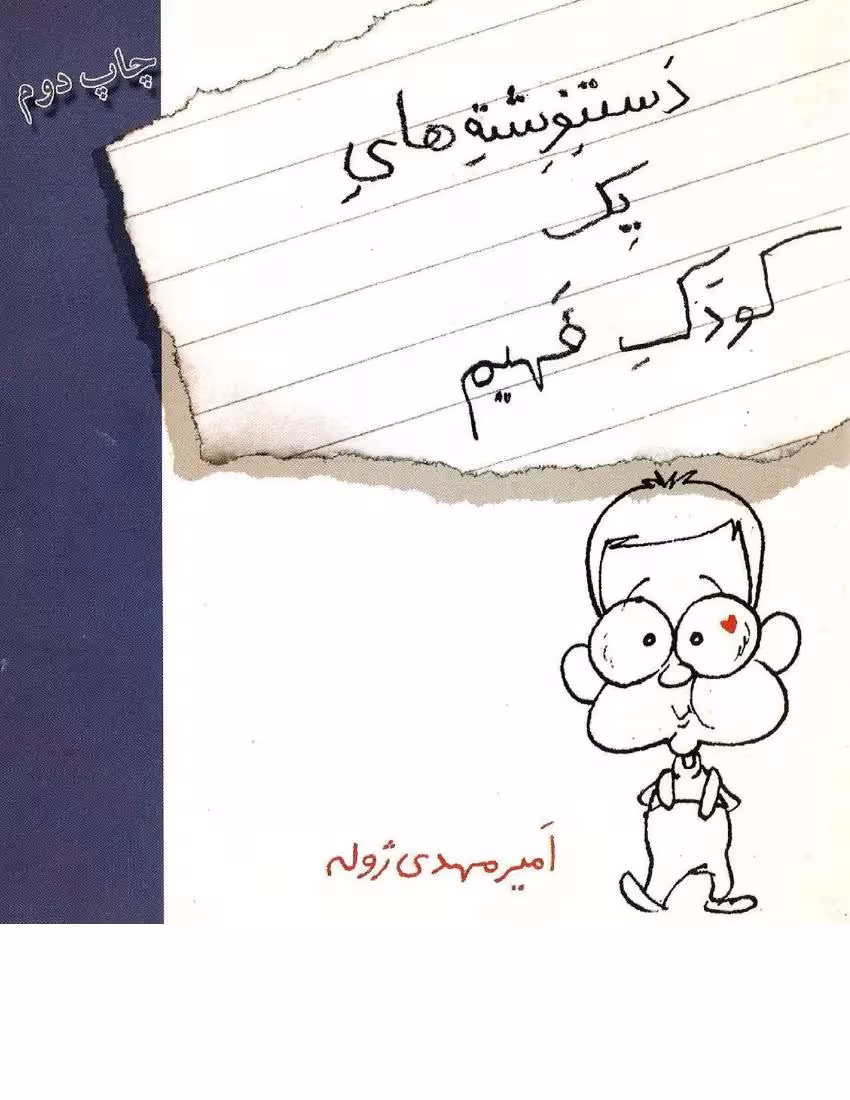 چاپ دوم
دَستنِوشتِه هایِ
یِک
کودَکِ فَهیم
اَمیرمهدی ژوله